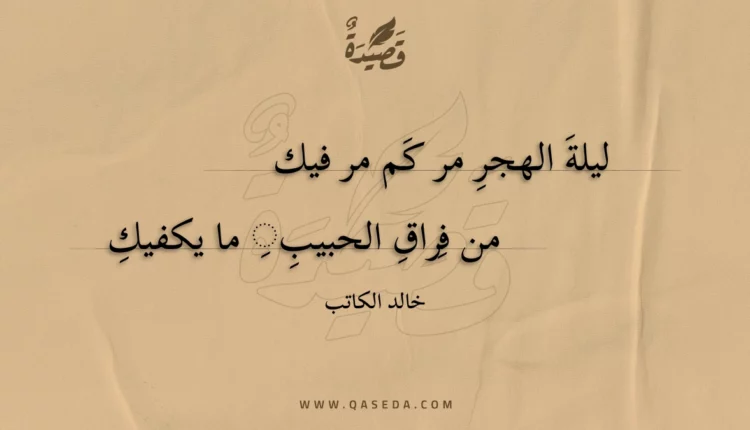 قَصِيدَةٌ
ليلةَ الهجرِ مر كَم مر فيك
من فِراقِ الحبيبِ ِ ما يكفيكِ
خالد الكاتب
WWW.QASEDA.COM